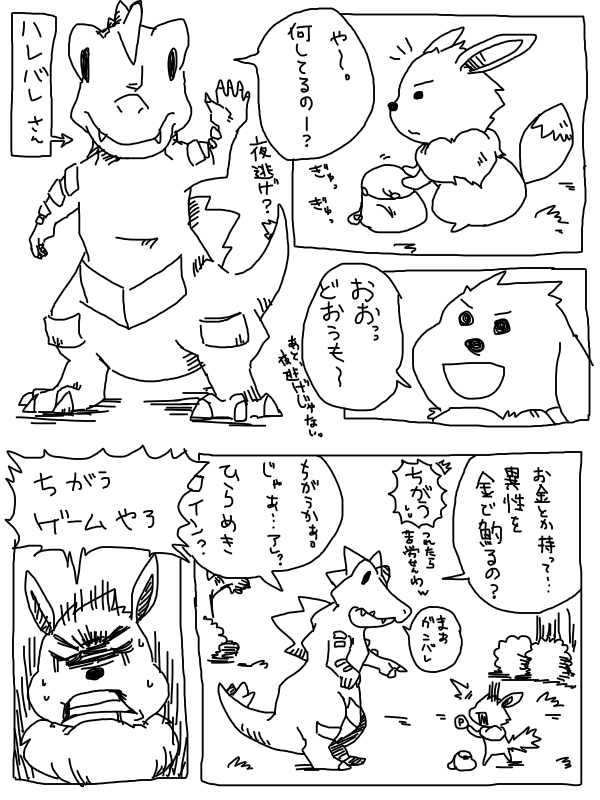 や〜。
何してるのー？
ぎゅっ
ぎゅっ
夜逃げ？
ハレバレさん
おおっっ
どおうも〜
あと、夜逃げじゃない。
お金とか持って…
異性を
金で魚釣るの？
ちがう
つれたら
苦労せんわw
まぁ
ガンバレ
P
ちがうかぁ。
じゃぁ…アレ？
ひらめき
コイン？
ちがう
ゲームやろ